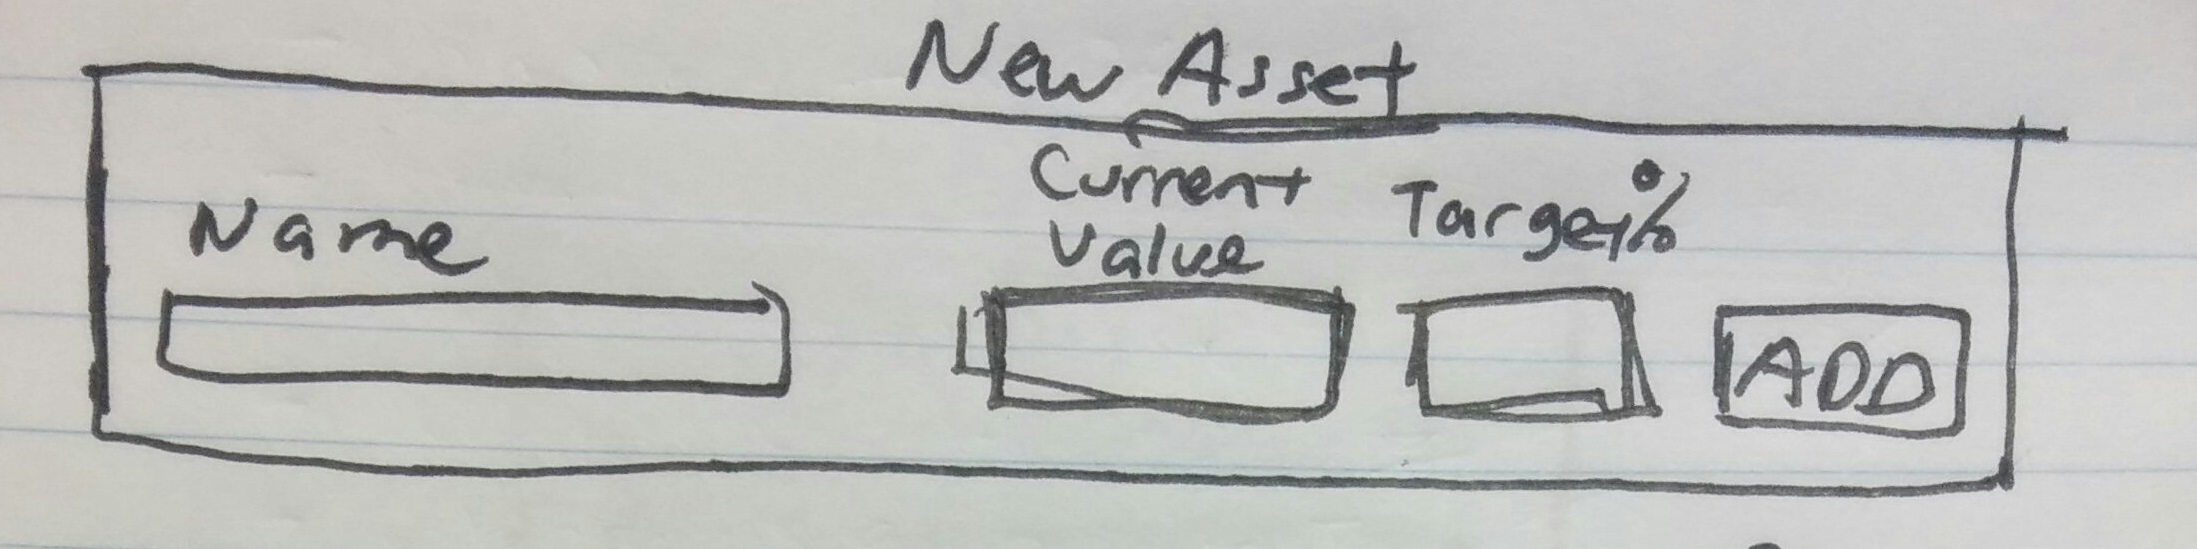 New Asset
Name
Current
Value
Target%
ADD